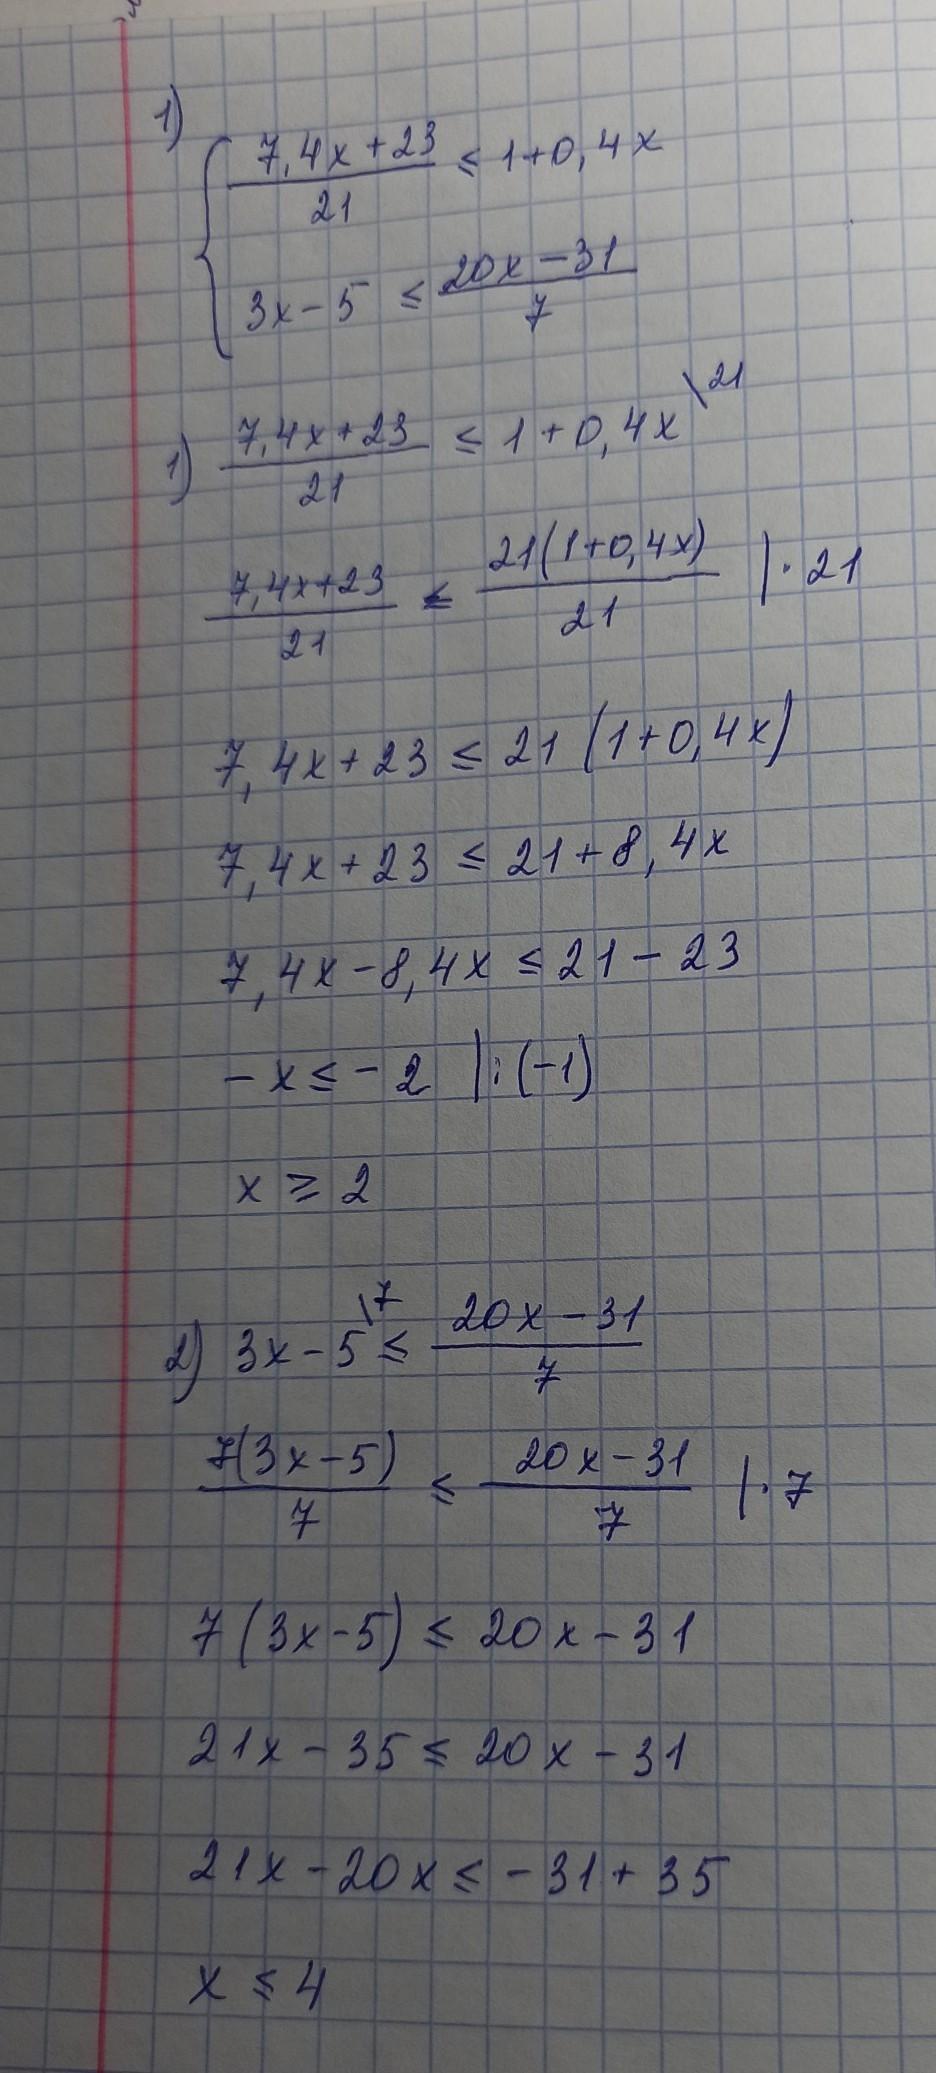 1)
(7,4x+23)/21 ≤ 1+0,4x
3x-5 ≤ (20x-31)/7
1) (7,4x+23)/21 ≤ 1+0,4x \21
(7,4x+23)/21 ≤ 21(1+0,4x)/21 |·21
7,4x+23 ≤ 21(1+0,4x)
7,4x+23 ≤ 21+8,4x
7,4x-8,4x ≤ 21-23
-x ≤ -2 |:(-1)
x ≥ 2
2) 3x-5 \7 ≤ (20x-31)/7
7(3x-5)/7 ≤ (20x-31)/7 |·7
7(3x-5) ≤ 20x-31
21x-35 ≤ 20x-31
21x-20x ≤ -31+35
x ≤ 4